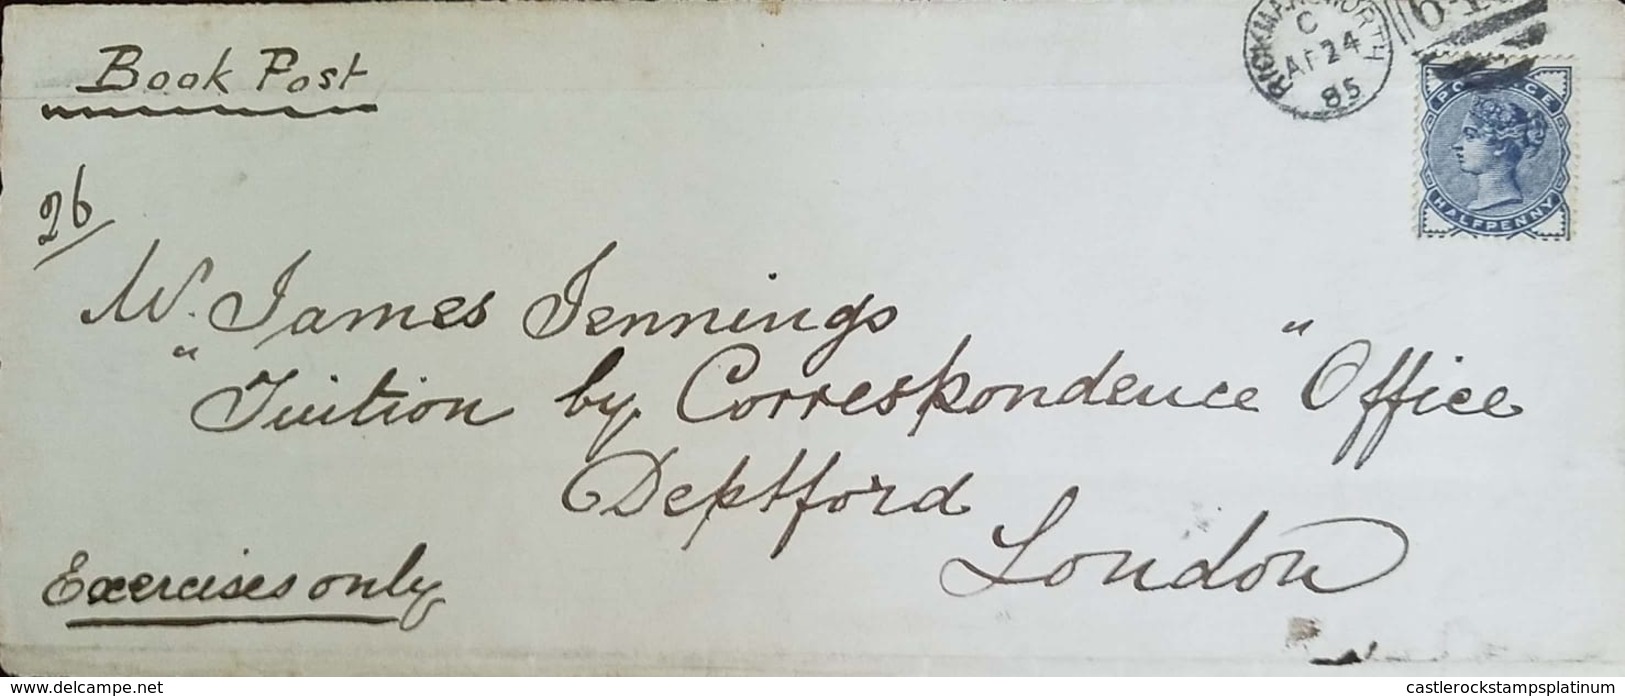 Book Post
RICKMANSWORTH
C
AP 24
85
POSTAGE
HALFPENNY
26
W. James Jennings
"Tuition by Correspondence" Office
Deptford
London
Exercises only
delcampe.net
castlerockstampsplatinum